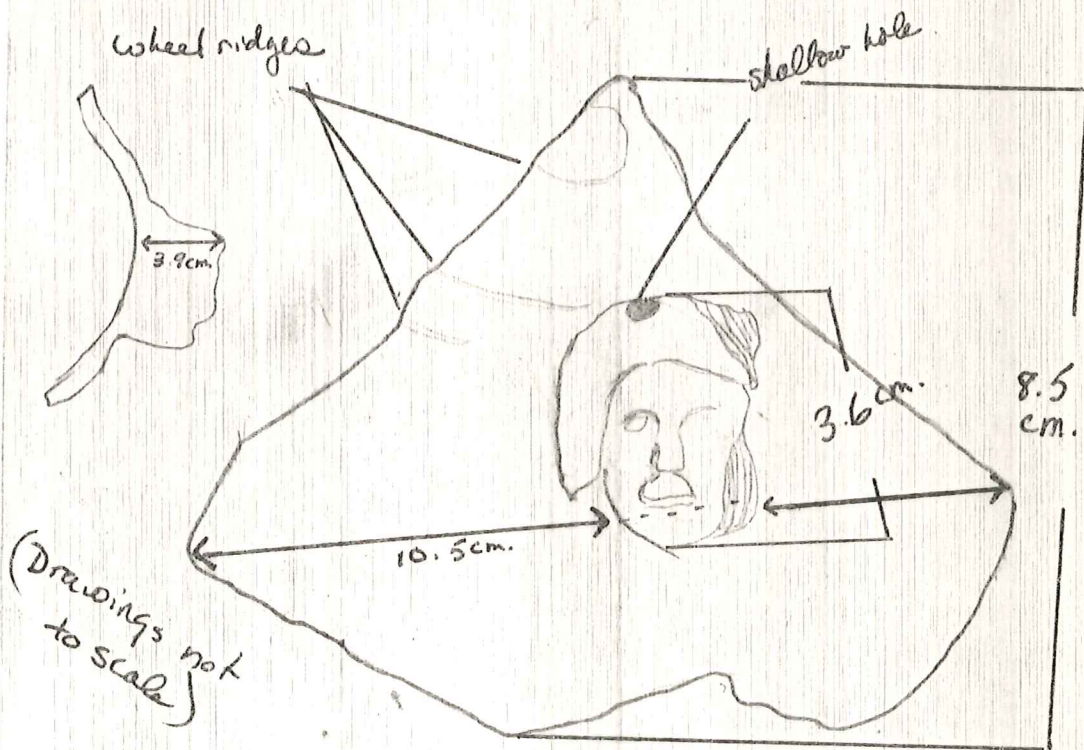 wheel ridges
shallow hole
3.9cm.
3.6 cm.
8.5
cm.
10.5cm.
(Drawings not
to scale)